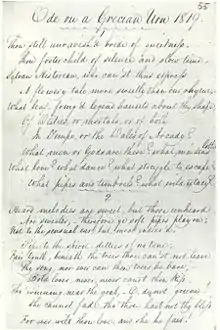 55
Ode on a Grecian Urn 1819.
Thou still unravish'd bride of quietness,
Thou foster child of silence and slow time,
Sylvan Historian, who can'st thus express
A flowery tale more sweetly than our rhyme:
What leaf-fring'd legend haunts about thy shape
Of Deities, or mortals, or of both
In Tempe, or the Dales of Arcady?
What men or Gods are these? what maidens loth
What love? what dance? what struggle to escape?
What pipes and timbrels? what wild extacy?
2
Heard melodies are sweet, but those unheard
Are sweeter; therefore ye soft pipes play on;
Not to the sensual ear, but more endear'd,
Pipe to the spirit ditties of no tone:
Fair Youth, beneath the trees thou can'st not leave
Thy song, nor ever can those trees be bare;
Bold lover never, never canst thou kiss
Tho' winning near the goal — O, do not grieve!
She cannot fade, tho' thou hast not thy bliss
For ever wilt thou love, and she be fair!